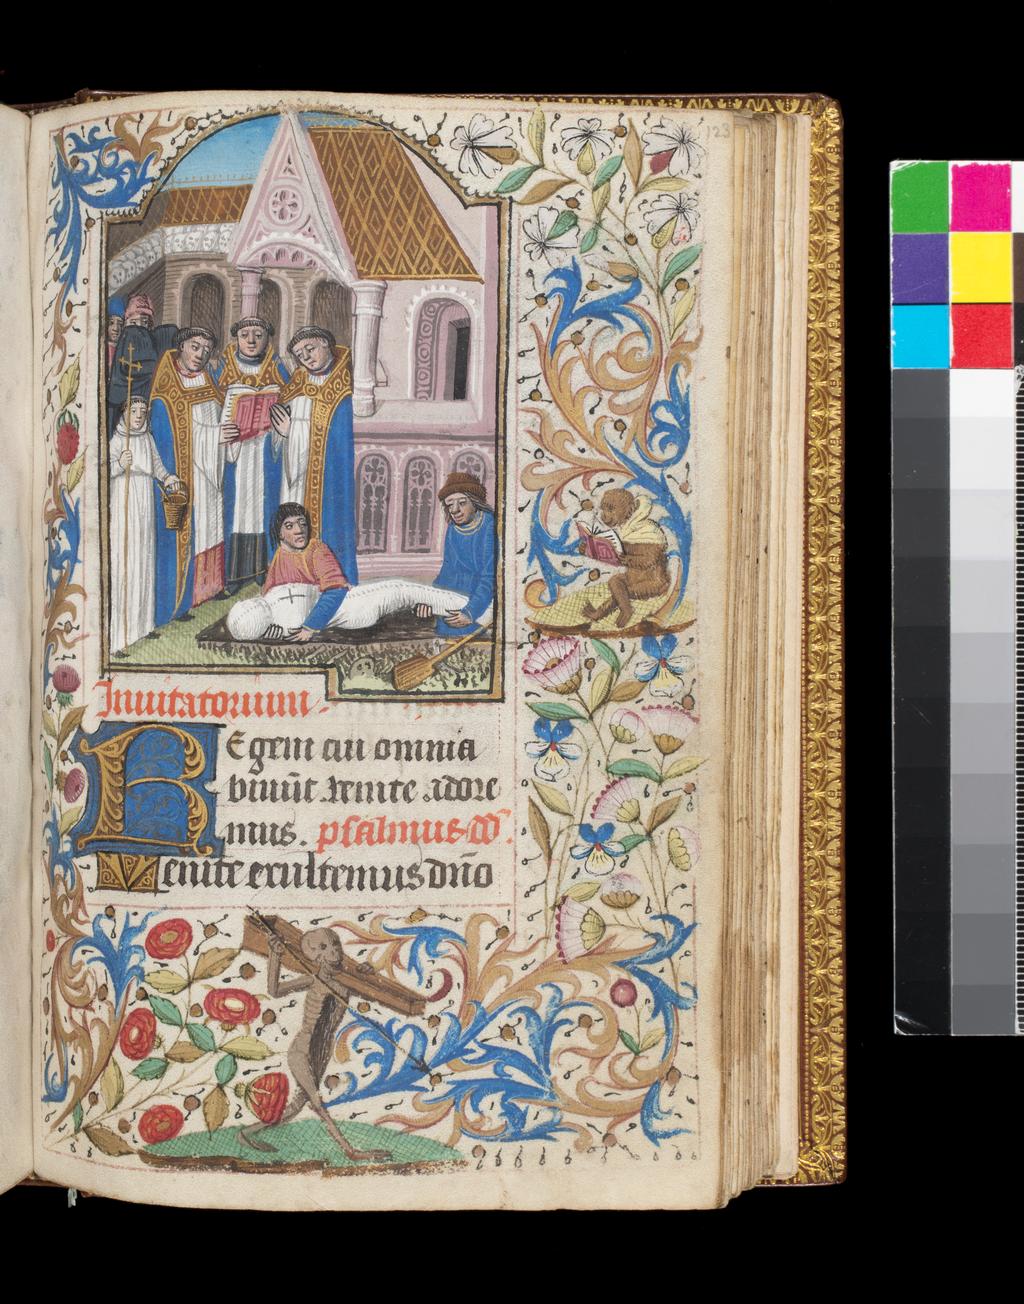 123
Inuitatorium.
REgem cui omnia
viuūt venite adore
mus. psalmus dd.
Venite exultemus dn̄o